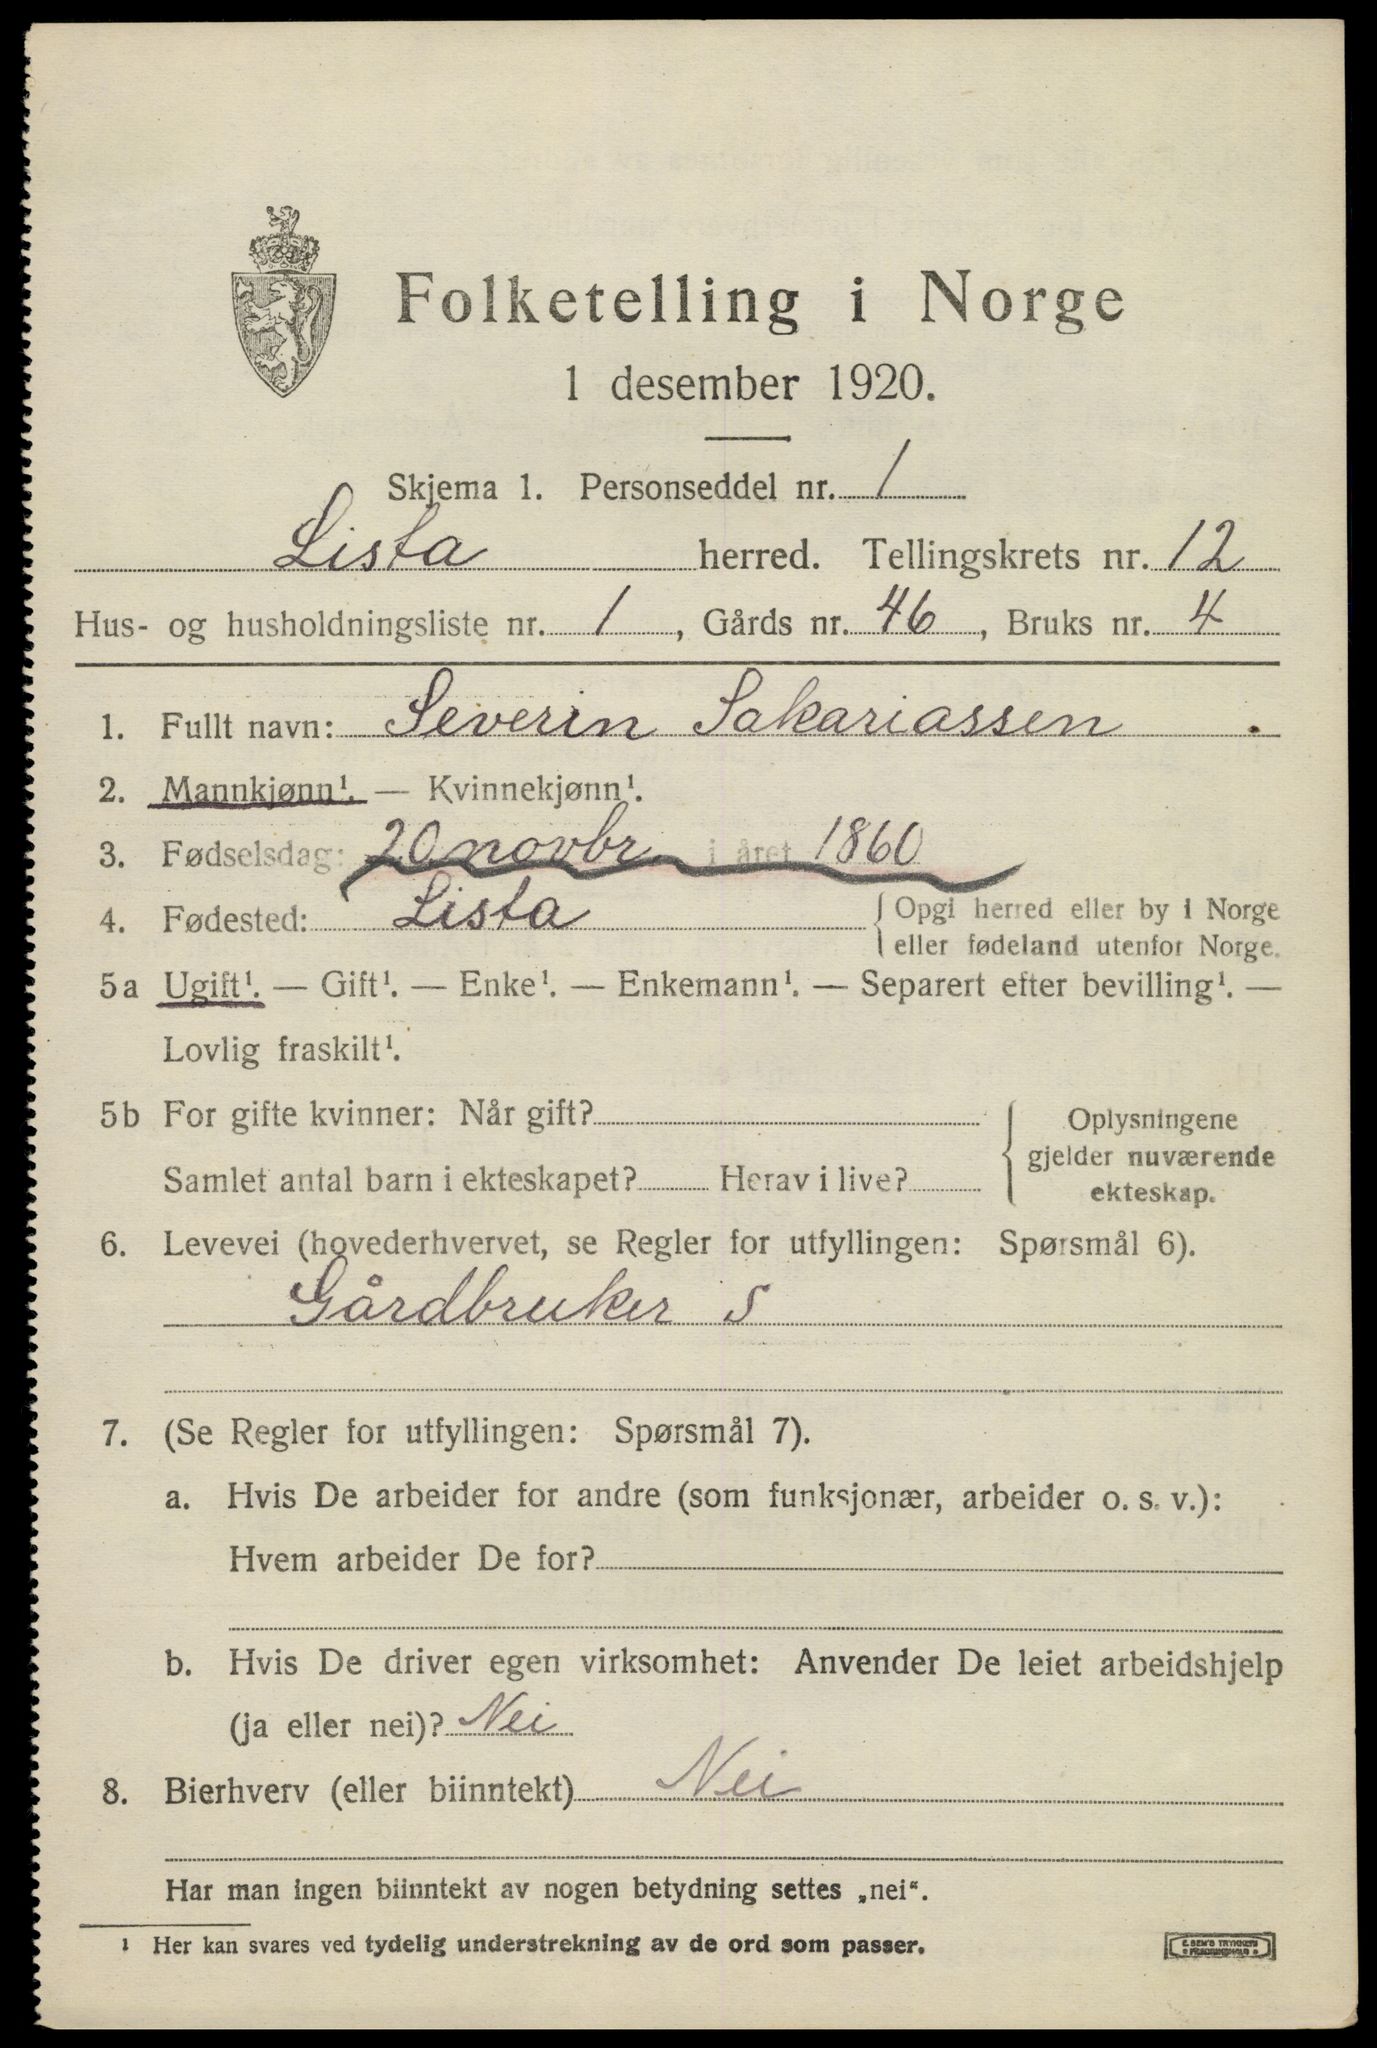 Folketelling i Norge
1 desember 1920.
Skjema 1. Personseddel nr. 1
Lista herred. Tellingskrets nr. 12
Hus- og husholdningsliste nr. 1, Gårds nr. 46, Bruks nr. 4
1. Fullt navn: Severin Sakariassen
2. Mannkjønn¹. — Kvinnekjønn¹.
3. Fødselsdag: 20 novbr. i året 1860
4. Fødested: Lista { Opgi herred eller by i Norge
eller fødeland utenfor Norge.
5a Ugift¹. — Gift¹. — Enke¹. — Enkemann¹. — Separert efter bevilling¹. —
Lovlig fraskilt¹.
5b For gifte kvinner: Når gift? { Oplysningene
gjelder nuværende
Samlet antal barn i ekteskapet? Herav i live?
ekteskap.
6. Levevei (hovederhvervet, se Regler for utfyllingen: Spørsmål 6).
Gårdbruker S
7. (Se Regler for utfyllingen: Spørsmål 7).
a. Hvis De arbeider for andre (som funksjonær, arbeider o. s. v.):
Hvem arbeider De for?
b. Hvis De driver egen virksomhet: Anvender De leiet arbeidshjelp
(ja eller nei)? Nei
8. Bierhverv (eller biinntekt) Nei
Har man ingen biinntekt av nogen betydning settes „nei“.
¹ Her kan svares ved tydelig understrekning av de ord som passer.